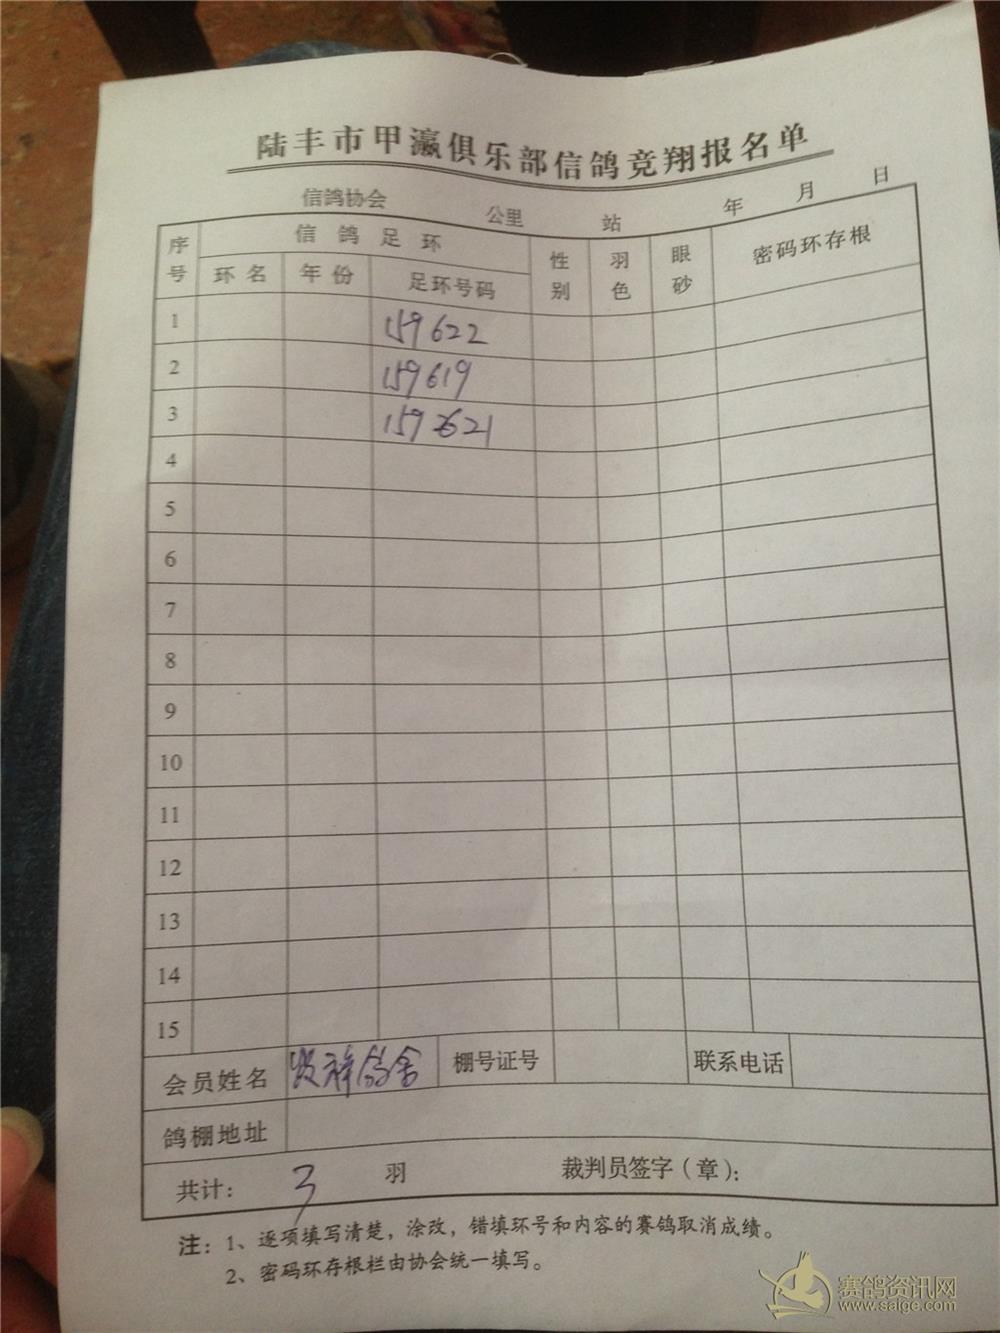 陆丰市甲瀛俱乐部信鸽竞翔报名单
信鸽协会 公里 站 年 月 日
序号 信鸽足环 性别 羽色 眼砂 密码环存根
环名 年份 足环号码
1 159622
2 159619
3 159621
4
5
6
7
8
9
10
11
12
13
14
15
会员姓名 祥鸽舍 棚号证号 联系电话
鸽棚地址
共计： 3 羽 裁判员签字（章）：
注：1、逐项填写清楚，涂改，错填环号和内容的赛鸽取消成绩。
2、密码环存根栏由协会统一填写。
赛鸽资讯网
www.saige.com